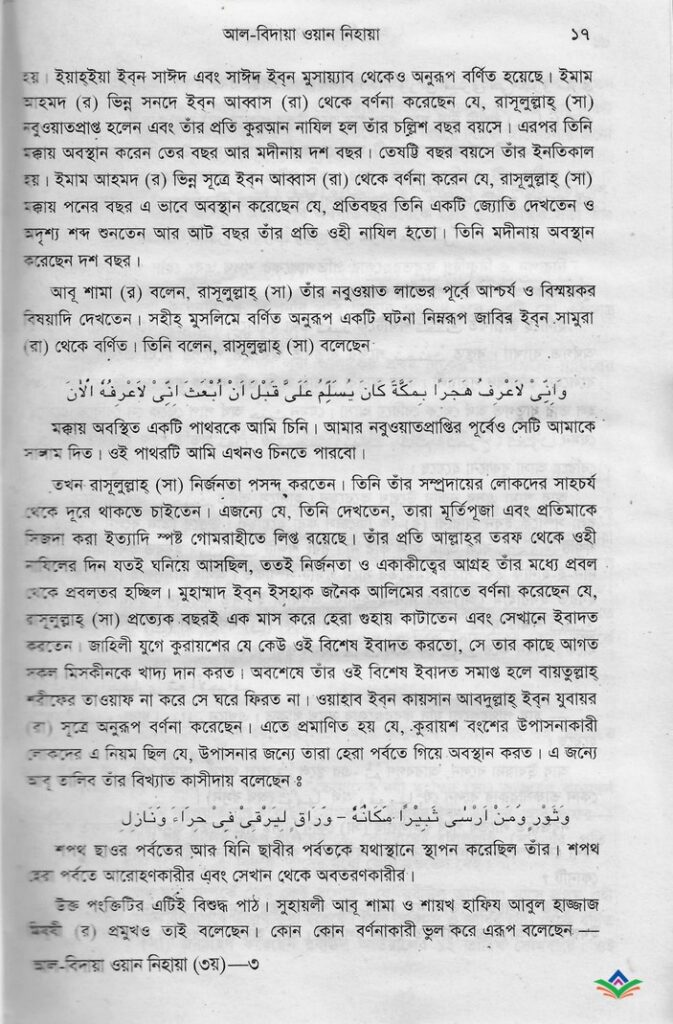 আল-বিদায়া ওয়ান নিহায়া ১৭
হয়। ইয়াহ্ইয়া ইব্‌ন সাঈদ এবং সাঈদ ইব্‌ন মুসায়্যাব থেকেও অনুরূপ বর্ণিত হয়েছে। ইমাম
আহমদ (র) ভিন্ন সনদে ইব্‌ন আব্বাস (রা) থেকে বর্ণনা করেছেন যে, রাসূলুল্লাহ্ (সা)
নবুওয়াতপ্রাপ্ত হলেন এবং তাঁর প্রতি কুরআন নাযিল হল তাঁর চল্লিশ বছর বয়সে। এরপর তিনি
মক্কায় অবস্থান করেন তের বছর আর মদীনায় দশ বছর। তেষট্টি বছর বয়সে তাঁর ইনতিকাল
হয়। ইমাম আহমদ (র) ভিন্ন সূত্রে ইব্‌ন আব্বাস (রা) থেকে বর্ণনা করেন যে, রাসূলুল্লাহ্ (সা)
মক্কায় পনের বছর এ ভাবে অবস্থান করেছেন যে, প্রতিবছর তিনি একটি জ্যোতি দেখতেন ও
অদৃশ্য শব্দ শুনতেন আর আট বছর তাঁর প্রতি ওহী নাযিল হতো। তিনি মদীনায় অবস্থান
করেছেন দশ বছর।
আবূ শামা (র) বলেন, রাসূলুল্লাহ্ (সা) তাঁর নবুওয়াত লাভের পূর্বে আশ্চর্য ও বিস্ময়কর
বিষয়াদি দেখতেন। সহীহ্ মুসলিমে বর্ণিত অনুরূপ একটি ঘটনা নিম্নরূপ জাবির ইব্‌ন সামুরা
(রা) থেকে বর্ণিত। তিনি বলেন, রাসূলুল্লাহ্ (সা) বলেছেন
وَانِّىْ لاَعْرِفُ هَجَرًا بِمَكَّةَ كَانَ يُسَلِّمُ عَلَىَّ قَبْلَ اَنْ اُبْعَثَ اِنِّىْ لاَعْرِفُهُ الْاٰنَ
মক্কায় অবস্থিত একটি পাথরকে আমি চিনি। আমার নবুওয়াতপ্রাপ্তির পূর্বেও সেটি আমাকে
সালাম দিত। ওই পাথরটি আমি এখনও চিনতে পারবো।
তখন রাসূলুল্লাহ্ (সা) নির্জনতা পসন্দ করতেন। তিনি তাঁর সম্প্রদায়ের লোকদের সাহচর্য
থেকে দূরে থাকতে চাইতেন। এজন্যে যে, তিনি দেখতেন, তারা মূর্তিপূজা এবং প্রতিমাকে
সিজদা করা ইত্যাদি স্পষ্ট গোমরাহীতে লিপ্ত রয়েছে। তাঁর প্রতি আল্লাহ্‌র তরফ থেকে ওহী
নাযিলের দিন যতই ঘনিয়ে আসছিল, ততই নির্জনতা ও একাকীত্বের আগ্রহ তাঁর মধ্যে প্রবল
থেকে প্রবলতর হচ্ছিল। মুহাম্মাদ ইব্‌ন ইসহাক জনৈক আলিমের বরাতে বর্ণনা করেছেন যে,
রাসূলুল্লাহ্ (সা) প্রত্যেক বছরই এক মাস করে হেরা গুহায় কাটাতেন এবং সেখানে ইবাদত
করতেন। জাহিলী যুগে কুরায়শের যে কেউ ওই বিশেষ ইবাদত করতো, সে তার কাছে আগত
সকল মিসকীনকে খাদ্য দান করত। অবশেষে তাঁর ওই বিশেষ ইবাদত সমাপ্ত হলে বায়তুল্লাহ্
শরীফের তাওয়াফ না করে সে ঘরে ফিরত না। ওয়াহাব ইব্‌ন কায়সান আবদুল্লাহ্ ইব্‌ন যুবায়র
(রা) সূত্রে অনুরূপ বর্ণনা করেছেন। এতে প্রমাণিত হয় যে, কুরায়শ বংশের উপাসনাকারী
লোকদের এ নিয়ম ছিল যে, উপাসনার জন্যে তারা হেরা পর্বতে গিয়ে অবস্থান করত। এ জন্যে
আবূ তালিব তাঁর বিখ্যাত কাসীদায় বলেছেন ঃ
وَثَوْرٍ وَمَنْ اَرْسٰى ثَبِيْرًا مَكَانَهُ – وَرَاقٍ لِيَرْقٰى فِىْ حِرَاءَ وَنَازِلِ
শপথ ছাওর পর্বতের আর যিনি ছাবীর পর্বতকে যথাস্থানে স্থাপন করেছিল তাঁর। শপথ
হেরা পর্বতে আরোহণকারীর এবং সেখান থেকে অবতরণকারীর।
উক্ত পংক্তিটির এটিই বিশুদ্ধ পাঠ। সুহায়লী আবূ শামা ও শায়খ হাফিয আবুল হাজ্জাজ
(র) প্রমুখও তাই বলেছেন। কোন কোন বর্ণনাকারী ভুল করে এরূপ বলেছেন —
আল-বিদায়া ওয়ান নিহায়া (৩য়)—৩